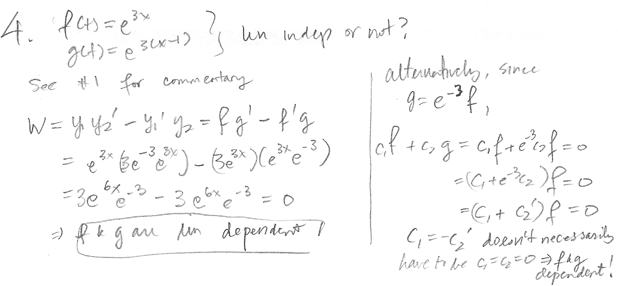 4. f(t) = e^{3x}
g(t) = e^{3(x-1)} } lin indep or not?
See #1 for commentary
W = y₁y₂' - y₁'y₂ = fg' - f'g
= e^{3x}(3e^{-3}e^{3x}) - (3e^{3x})(e^{3x}e^{-3})
= 3e^{6x}e^{-3} - 3e^{6x}e^{-3} = 0
⇒ f & g are lin dependent!
alternatively, since
g = e^{-3}f,
c₁f + c₂g = c₁f + e^{-3}c₂f = 0
= (c₁ + e^{-3}c₂)f = 0
= (c₁ + c₂')f = 0
c₁ = -c₂' doesn't necessarily
have to be c₁ = c₂ = 0 ⇒ f & g
dependent!